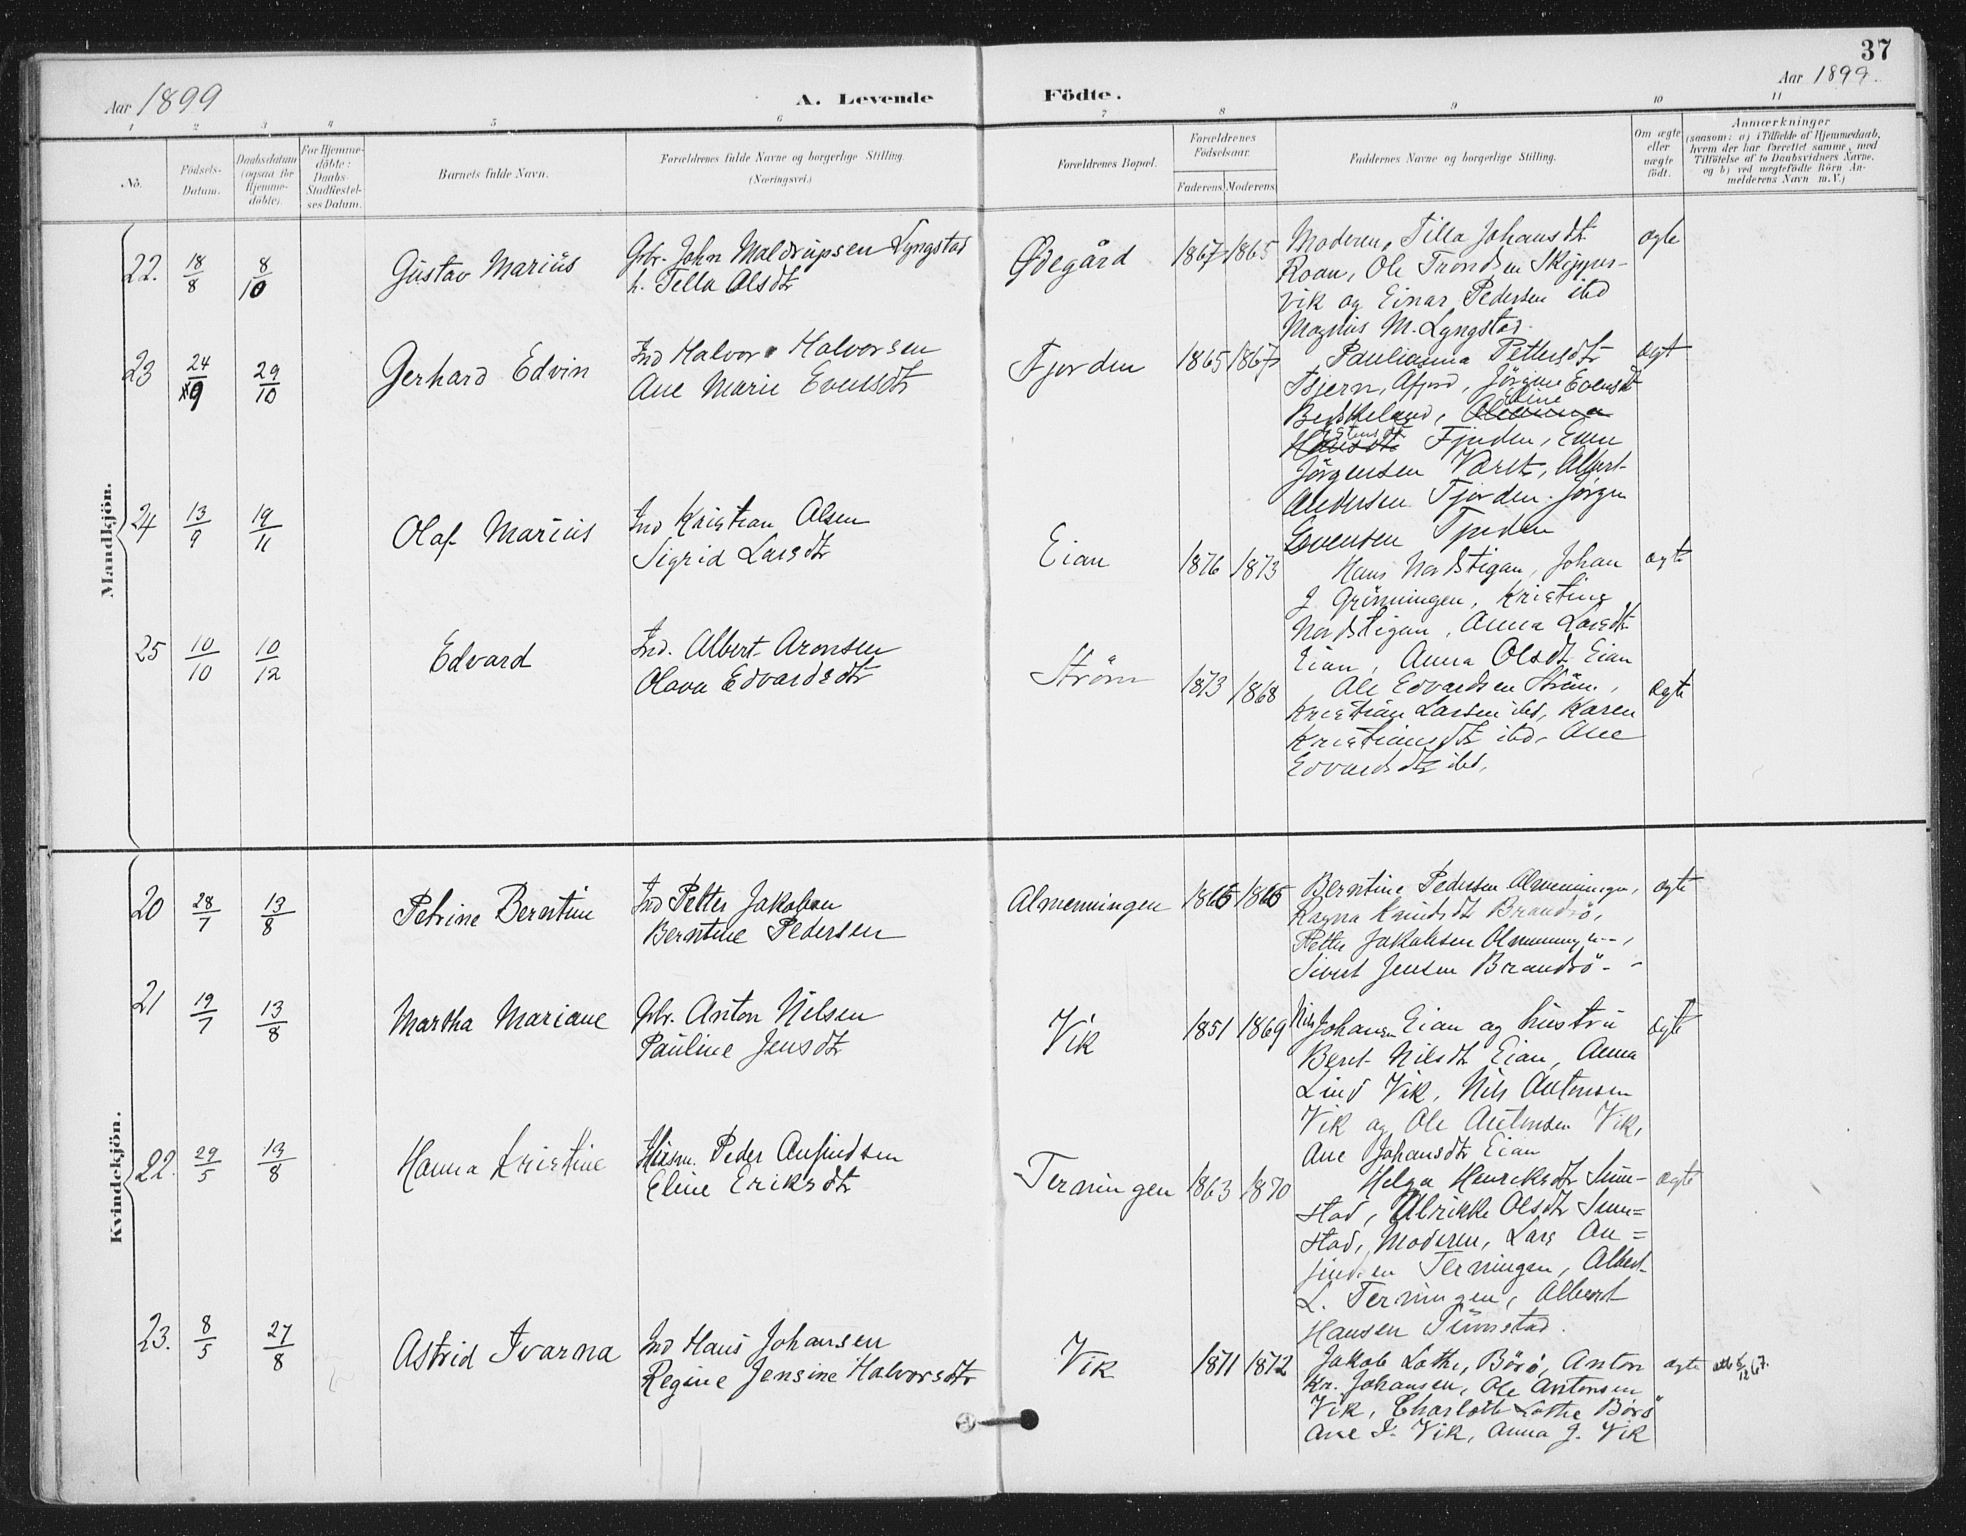 37
Aar 1899
A. Levende Födte.
Aar 1899.
1 2 3 4 5 6 7 8 9 10 11
No.
Födsels-
Datum.
Daabsdatum
(ogsaa for
Hjemme-
döbte).
For Hjemme-
döbte:
Daabs-
Stadfæstel-
ses Datum.
Barnets fulde Navn.
Forældrenes fulde Navne og borgerlige Stilling.
(Næringsvei.)
Forældrenes Bopæl.
Forældrenes
Födselsaar.
Faderens. Moderens.
Faddernes Navne og borgerlige Stilling.
Om ægte
eller
uægte
født.
Anmærkninger
(saasom: a) i Tilfælde af Hjemmedaab,
hvem der har forrettet samme, med
Tilföielse af to Daabsvidners Navne,
og b) ved uægtefödte Börn An-
melderens Navn m. V.)
Mandkjön.
22. 18/8 8/10 Gustav Marius
Gbr. John Maldrupsen Lyngstad
h. Tella Olsdtr
Ødegård 1867 1865
Moderen, Tilla Johansdtr
Roan, Ole Trondsen Skipper-
vik og Einar Pedersen ibd
Magnus M. Lyngstad.
ægte
23 24/9 29/10 Gerhard Edvin
Ind Halvor Halvorsen
Ane Marie Evensdtr
Fjorden 1865 1867
Paulianna Pettersdtr
Tjern, Afjord, Jörgine Evensdtr
Beskeland, Eline
Stensdtr Fjorden, Even
Jörgensen Varet, Albert
Andersen Fjorden. Jörgen
Evensen Fjorden
ægt
24 13/9 19/11 Olaf Marius
Ind Kristian Olsen
Sigrid Larsdtr
Eian 1876 1873
Hans Nordstigan, Johan
J. Grönningen, Kristine
Nordstigan, Anna Larsdtr
Eian, Anna Olsdtr Eian
ægte
25 10/10 10/12 Edvard
Ind. Albert Aronsen
Olava Edvardsdtr
Strøm 1873 1868
Ole Edvardsen Ström,
Kristian Larsen ibd, Karen
Kristiansdtr ibd, Ane
Edvardsdtr ibd.
ægte
Kvindekjön.
20 28/7 13/8 Petrine Berntine
Ind Petter Jakobsen
Berntine Pedersen
Almenningen 1865 1865
Berntine Pedersen Almenningen,
Ragna Knudsdtr Brandsö,
Petter Jakobsen Almenningen,
Sivert Jensen Brandsö
ægte
21 19/7 13/8 Martha Mariane
Gbr. Anton Nilsen
Pauline Jensdtr
Vik 1851 1869
Nils Johansen Eian og hustru
Beret Nilsdtr Eian, Anna
Lind Vik, Nils Antonsen
Vik og Ole Antonsen Vik,
Ane Johansdtr Eian
ægte
22. 29/5 13/8 Hanna Kristine
Husm. Peder Anfindsen
Eline Eriksdtr
Terningen 1863 1870
Helga Henriksdtr Sum-
stad, Ulrikke Olsdtr Sum=
stad, Moderen, Lars An=
findsen Terningen, Albert
L. Terningen, Albert
Hansen Sumstad.
ægte
23. 8/5 27/8 Astrid Ivarna
Ind Hans Johansen
Regine Jensine Halvorsdtr
Vik 1871 1872
Jakob Lothe, Börö, Anton
Kr. Johansen, Ole Antonsen
Vik, Charlotte Lothe Börö
Ane I. Vik, Anna J. Vik
ægte